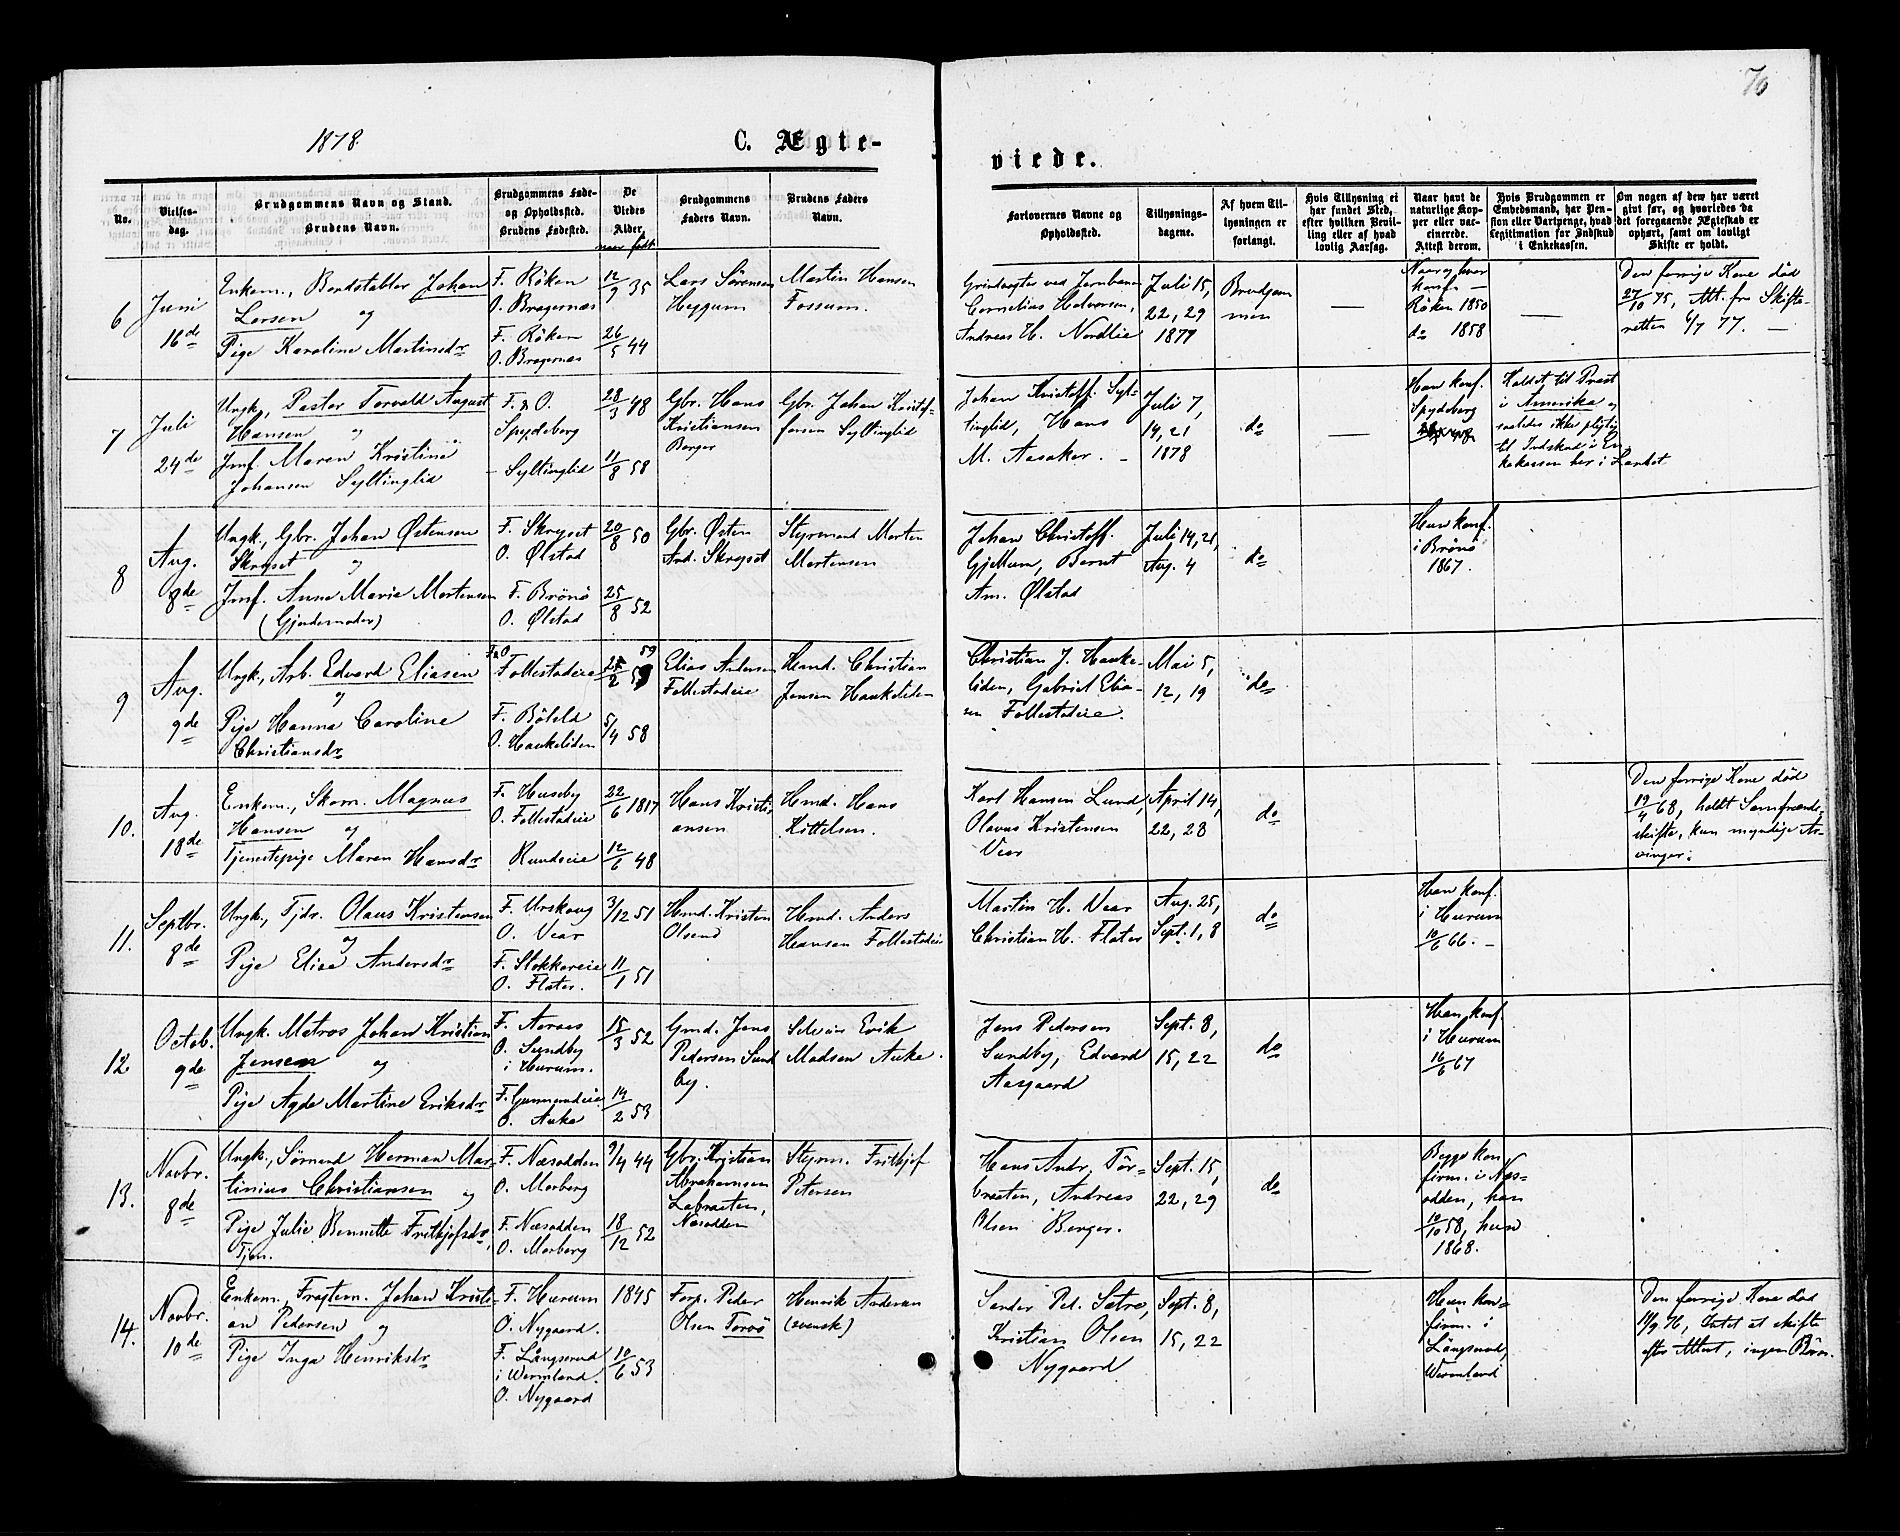 76
1878.
C. Ægte-
viede.
No.
Vielses-
dag.
Brudgommens Navn og Stand.
Brudens Navn.
Brudgommens Føde-
og Opholdssted.
Brudens Fødested.
De
Viedes
Alder.
naar født
Brudgommens
Faders Navn.
Brudens Faders
Navn.
Forlovernes Navne og
Opholdssted.
Tillysnings-
dagene.
Af hvem Til-
lysningen er
forlangt.
Hvis Tillysning ei
har fundet Sted,
efter hvilken Bevil-
ling eller af hvad
lovlig Aarsag.
Naar havt de
naturlige Kop-
per eller vac-
cinerede.
Attest derom.
Hvis Brudgommen er
Embedsmand, har Pen-
sion eller Vartpenge, hvad
Legitimation for Indskud
i Enkekassen.
Om nogen af dem har været
gift før, og hvorledes da
det foregaaende Ægteskab er
ophørt, samt om lovligt
Skifte er holdt.
6
Juni
16de
Enkem., Bordstabler Johan
Larsen og
Pige Karoline Martinsdr
F. Röken
O. Bragernæs
F. Röken
O. Bragernæs
12/9 35
26/5 44
Lars Sørensen
Heggum
Martin Hansen
Fossum.
Cornelius Halvorsen,
Andreas H. Nordlie
Juli 15,
22, 29
1877
Brudgom
men
—
Röken 1850
do 1858
—
Den forrige Kone död
27/10 75, Att. fra Skifte-
retten 6/7 77. —
7
Juli
24de
Ungk., Pastor Torvald August
Hansen og
Jmf. Maren Kristine
Johansen Syltinglid
F. & O.
Spydeberg
- Syltinglid
28/3 48
11/8 58
Gbr. Hans
Kristiansen
Berger
Gbr. Johan Kristof-
fersen Syltinglid
Johan Kristoff. Syl-
tinglid, Hans
M. Aasaker. -
Juli 7,
14, 21
1878
do
—
Han konf.
Spydeberg
Kaldet til Præst
i Amerika og
saaledes ikke pligtig
til Indskud i En-
kekassen her i Landet
8
Aug.
8de
Ungk., Gbr. Johan Østensen
Skryset og
Jmf. Anna Marie Mortensen
(Gjordemoder)
F. Skryset
O. Ølstad
F. Brönö
O. Ølstad
20/8 50
25/8 52
Gbr. Østen
And. Skryset
Styrmand Morten
Mortensen
Johan Christoff.
Gjellum, Bernt
Am. Ølstad
Juli 14, 21,
Aug. 4
do
Hun konf.
i Brönö
1867.
9
Aug.
9de
Ungk., Arb. Edvard Eliasen
og
Pige Hanna Caroline
Christiansdr
F. O.
Follestadeie
F. Bölstd
O. Haukeliden
59
5/4 58
Elias Andersen
Follestadeie
Hmd. Christian
Jensen Haukeliden
Christian J. Hauke-
liden, Gabriel Elia-
sen Follestadeie.
Mai 5,
12, 19
do
10.
Aug.
18de
Enkem., Skom. Magnus
Hansen og
Tjenestepige Maren Hansdr
F. Huseby
O. Follestadeie
Rundseie
22/6 1817
12/6 48
Hans Kristi-
ansen
Hmd. Hans
Kittelsen.
Karl Hansen Lund,
Olavus Kristensen
Vear
April 14,
22, 28
do
Den forrige Kone död
19/4 68, holdt Samfrænde-
skifte, kun myndige Ar-
vinger.
11.
Septbr.
8de
Ungk., Tjdr. Olaus Kristensen
og
Pige Elise Andersdr
F. Urskoug
O. Vear
F. Stokkereie
O. Flater.
3/12 51
11/1 51
Hmd. Kristen
Olsend
Hmd. Anders
Hansen Follestadeie
Martin H. Vear
Christian H. Flater
Aug. 25,
Sept. 1, 8
do
Han konf.
i Hurum
10/6 66. -
12
Octob.
9de
Ungk. Matros Johan Kristian
Jensen og
Pige Agde Martine Eriksdr
F. Aaraas
O. Sundby
i Hurum.
F. Gunnarudeie
O. Auke
15/3 52
14/2 53
Gmd. Jens
Pedersen Sund
by.
Selveier Erik
Madsen Auke.
Jens Pedersen
Sundby, Edvard
Aasgaard
Sept. 8,
15, 22
do
Han konf.
i Hurum
16/6 67
13.
Novbr.
8de
Ungk., Sömand Herman Mar-
tinius Christiansen og
Pige Julie Bennette Fritkjofsdr,
Tjen.
F. Næsodden
O. Morberg
F. Næsodden
O. Morberg
9/4 44
18/12 52
Gbr. Kristian
Abrahamsen
Labraaten,
Næsodden
Styrm. Fritkjof
Petersen
Hans Andr. Tör-
braaten, Andreas
Olsen Berger.
Sept. 15,
22, 29
do
Begge kon
firm. i Næs-
odden, han
10/10 58, hun
1868.
14.
Novbr.
10de
Enkem., Fragtem. Johan Kristi-
an Pedersen og
Pige Inga Henriksdr
F. Hurum
O. Nygaard.
F. Långserud
i Wermland.
O. Nygaard
1845
10/6 53
Forp. Peder
Olsen Tovsö
Henrik Andersen
(svensk)
Sander Ped. Sætre,
Kristian Olsen
Nygaard
Sept. 8,
15, 22
Hun kon-
firm. i
Långserud,
Wermland
Den forrige Kone död
11/9 76, Intet at skifte
efter Attest, ingen Börn.